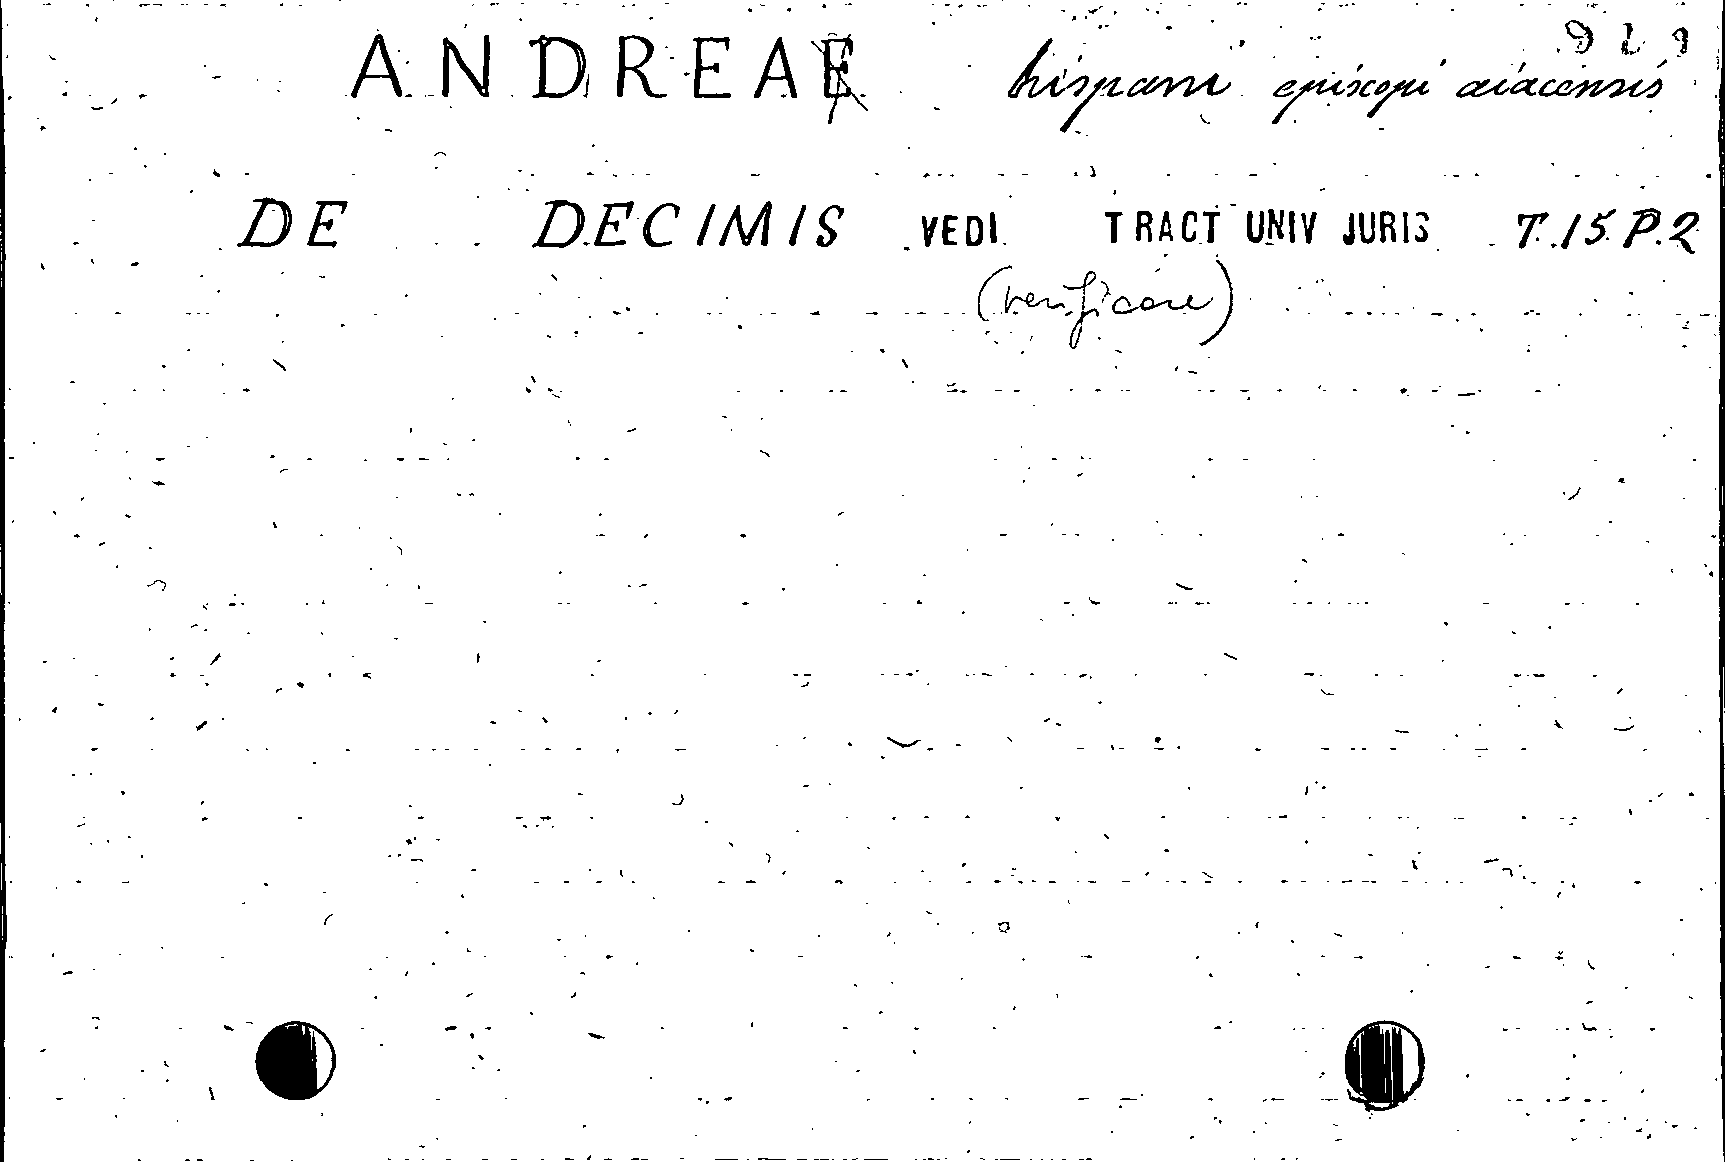 ANDREAE hispani episcopi aiacensis
DE DECIMIS VEDI TRACT UNIV JURIS T.15 P.2
(verificare)